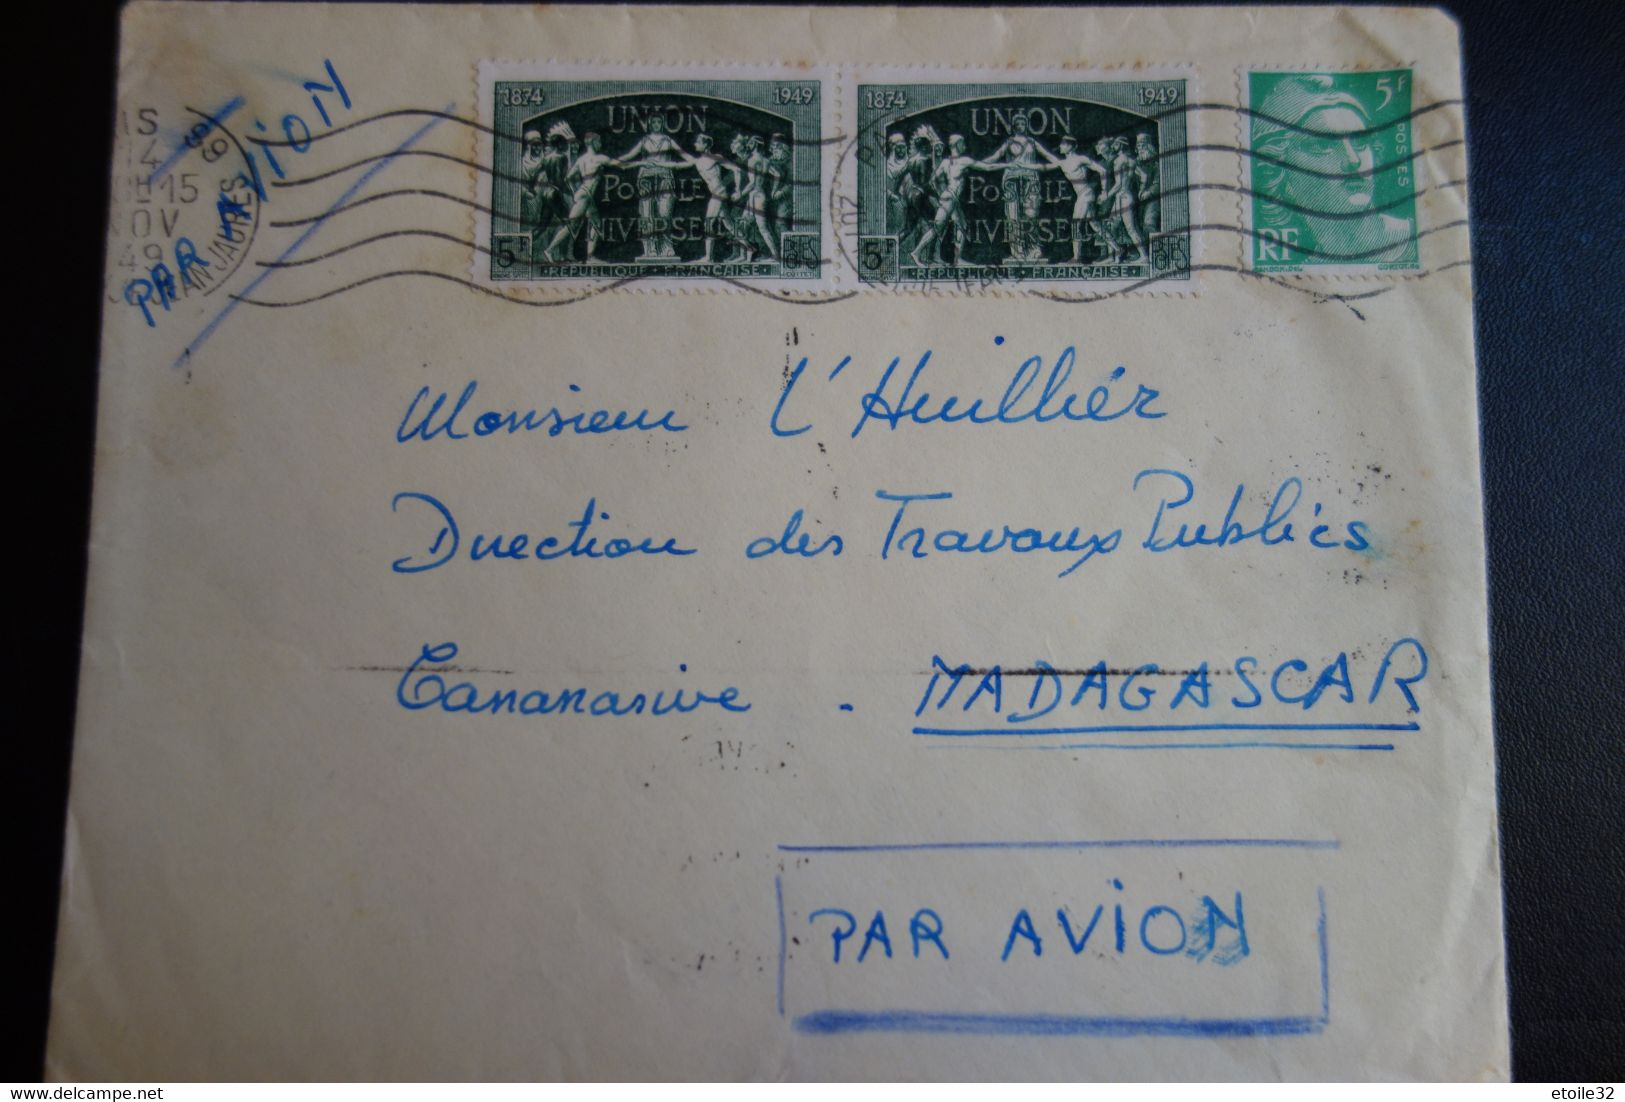 PAR AVION
1874 1949
UNION
POSTALE
UNIVERSELLE
5F
REPUBLIQUE FRANÇAISE
1874 1949
UNION
POSTALE
UNIVERSELLE
5F
REPUBLIQUE FRANÇAISE
5F
POSTES
RF
15
49
JAURES
Monsieur L'Huillier
Direction des Travaux Publics
Tananarive . MADAGASCAR
PAR AVION
etoile32